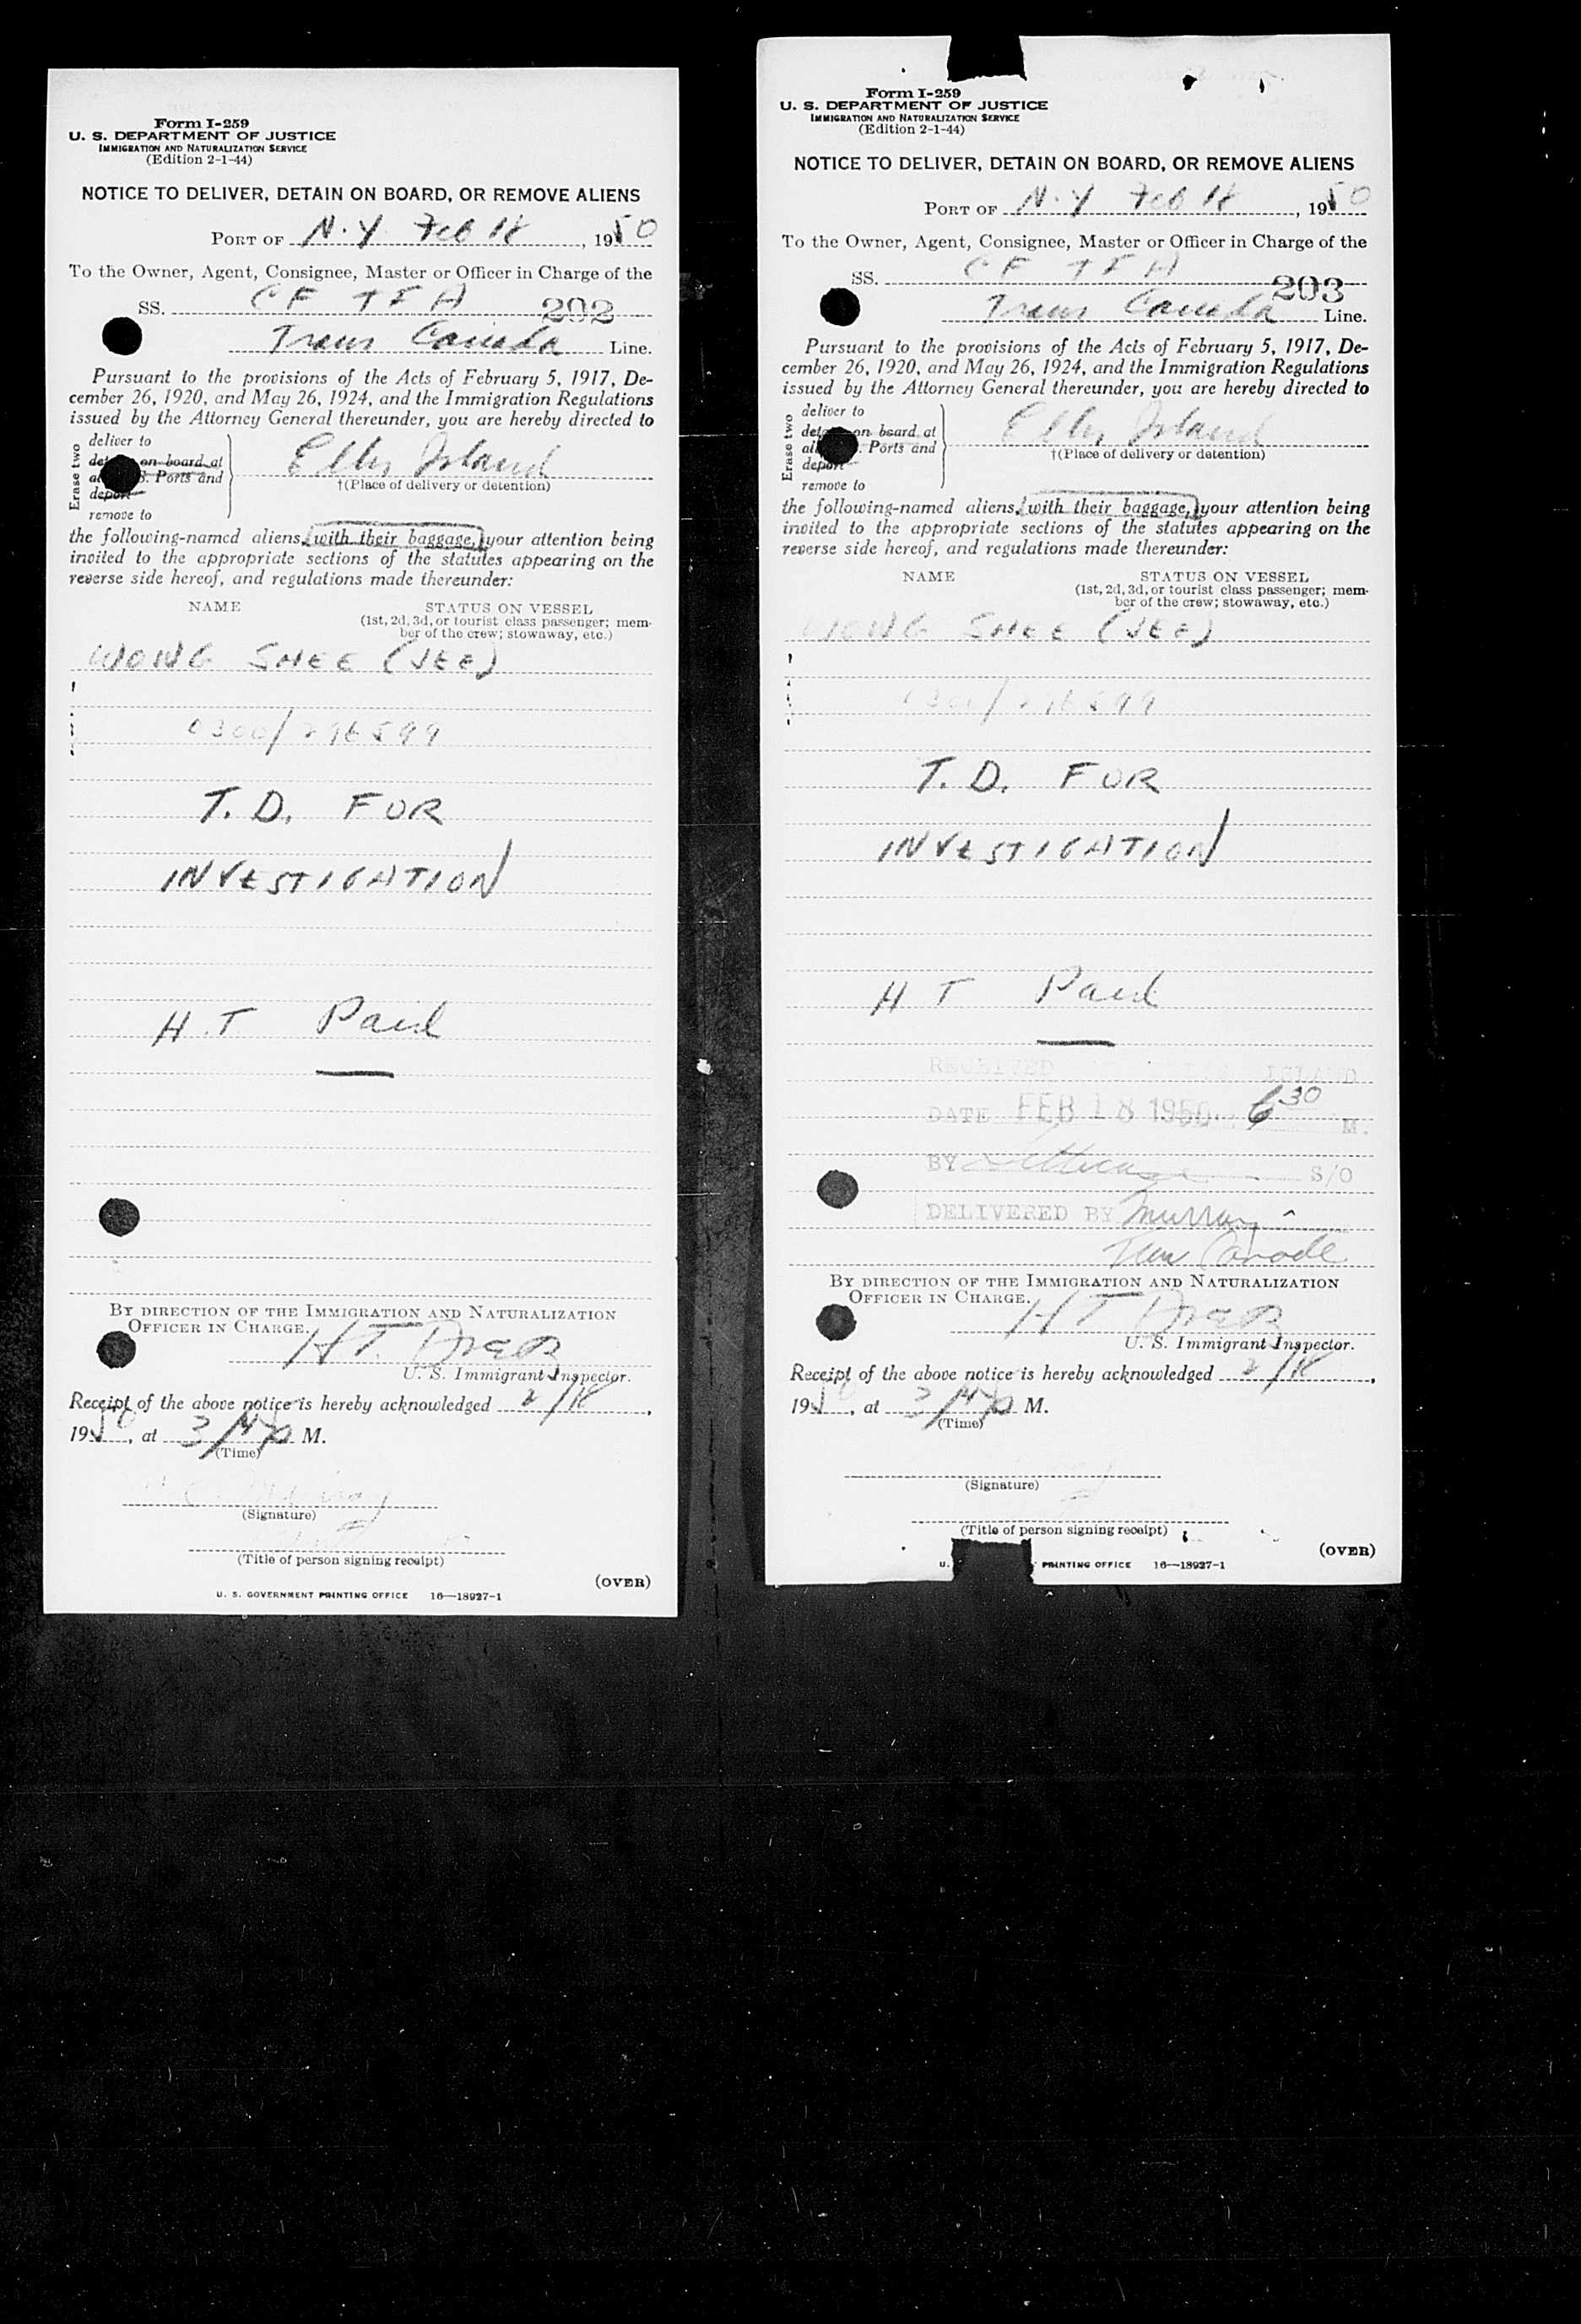 Form I-259
U. S. DEPARTMENT OF JUSTICE
IMMIGRATION AND NATURALIZATION SERVICE
(Edition 2-1-44)
NOTICE TO DELIVER, DETAIN ON BOARD, OR REMOVE ALIENS
PORT OF N.Y Feb 18, 1950
To the Owner, Agent, Consignee, Master or Officer in Charge of the
SS. CF TFA 202
Trans Canada Line.
Pursuant to the provisions of the Acts of February 5, 1917, De-
cember 26, 1920, and May 26, 1924, and the Immigration Regulations
issued by the Attorney General thereunder, you are hereby directed to
Erase two
deliver to
on board at
S. Ports and
deport
remove to
Ellis Island
†(Place of delivery or detention)
the following-named aliens, with their baggage, your attention being
invited to the appropriate sections of the statutes appearing on the
reverse side hereof, and regulations made thereunder:
NAME STATUS ON VESSEL
(1st, 2d, 3d, or tourist class passenger; mem-
ber of the crew; stowaway, etc.)
WONG SHEE (JEE)
0300/296599
T. D. FOR
INVESTIGATION
H.T Paid
BY DIRECTION OF THE IMMIGRATION AND NATURALIZATION
OFFICER IN CHARGE.
HT
U. S. Immigrant Inspector.
Receipt of the above notice is hereby acknowledged 2/18,
1950, at 3/ M.
(Time)
(Signature)
(Title of person signing receipt)
(OVER)
U. S. GOVERNMENT PRINTING OFFICE 16—18927-1
Form I-259
U. S. DEPARTMENT OF JUSTICE
IMMIGRATION AND NATURALIZATION SERVICE
(Edition 2-1-44)
NOTICE TO DELIVER, DETAIN ON BOARD, OR REMOVE ALIENS
PORT OF N.Y Feb 18, 1950
To the Owner, Agent, Consignee, Master or Officer in Charge of the
SS. CF TFA 203
Trans Canada Line.
Pursuant to the provisions of the Acts of February 5, 1917, De-
cember 26, 1920, and May 26, 1924, and the Immigration Regulations
issued by the Attorney General thereunder, you are hereby directed to
Erase two
deliver to
on board at
Ports and
deport
remove to
Ellis Island
†(Place of delivery or detention)
the following-named aliens, with their baggage, your attention being
invited to the appropriate sections of the statutes appearing on the
reverse side hereof, and regulations made thereunder:
NAME STATUS ON VESSEL
(1st, 2d, 3d, or tourist class passenger; mem-
ber of the crew; stowaway, etc.)
WONG SHEE (JEE)
0300/296599
T. D. FOR
INVESTIGATION
H T Paid
RECEIVED ISLAND
DATE FEB 18 1950 6 30 M.
BY S/O
DELIVERED BY Murray
BY DIRECTION OF THE IMMIGRATION AND NATURALIZATION
OFFICER IN CHARGE.
HT
U. S. Immigrant Inspector.
Receipt of the above notice is hereby acknowledged 2/18,
1950, at 3/ M.
(Time)
(Signature)
(Title of person signing receipt)
(OVER)
U. PRINTING OFFICE 16—18927-1